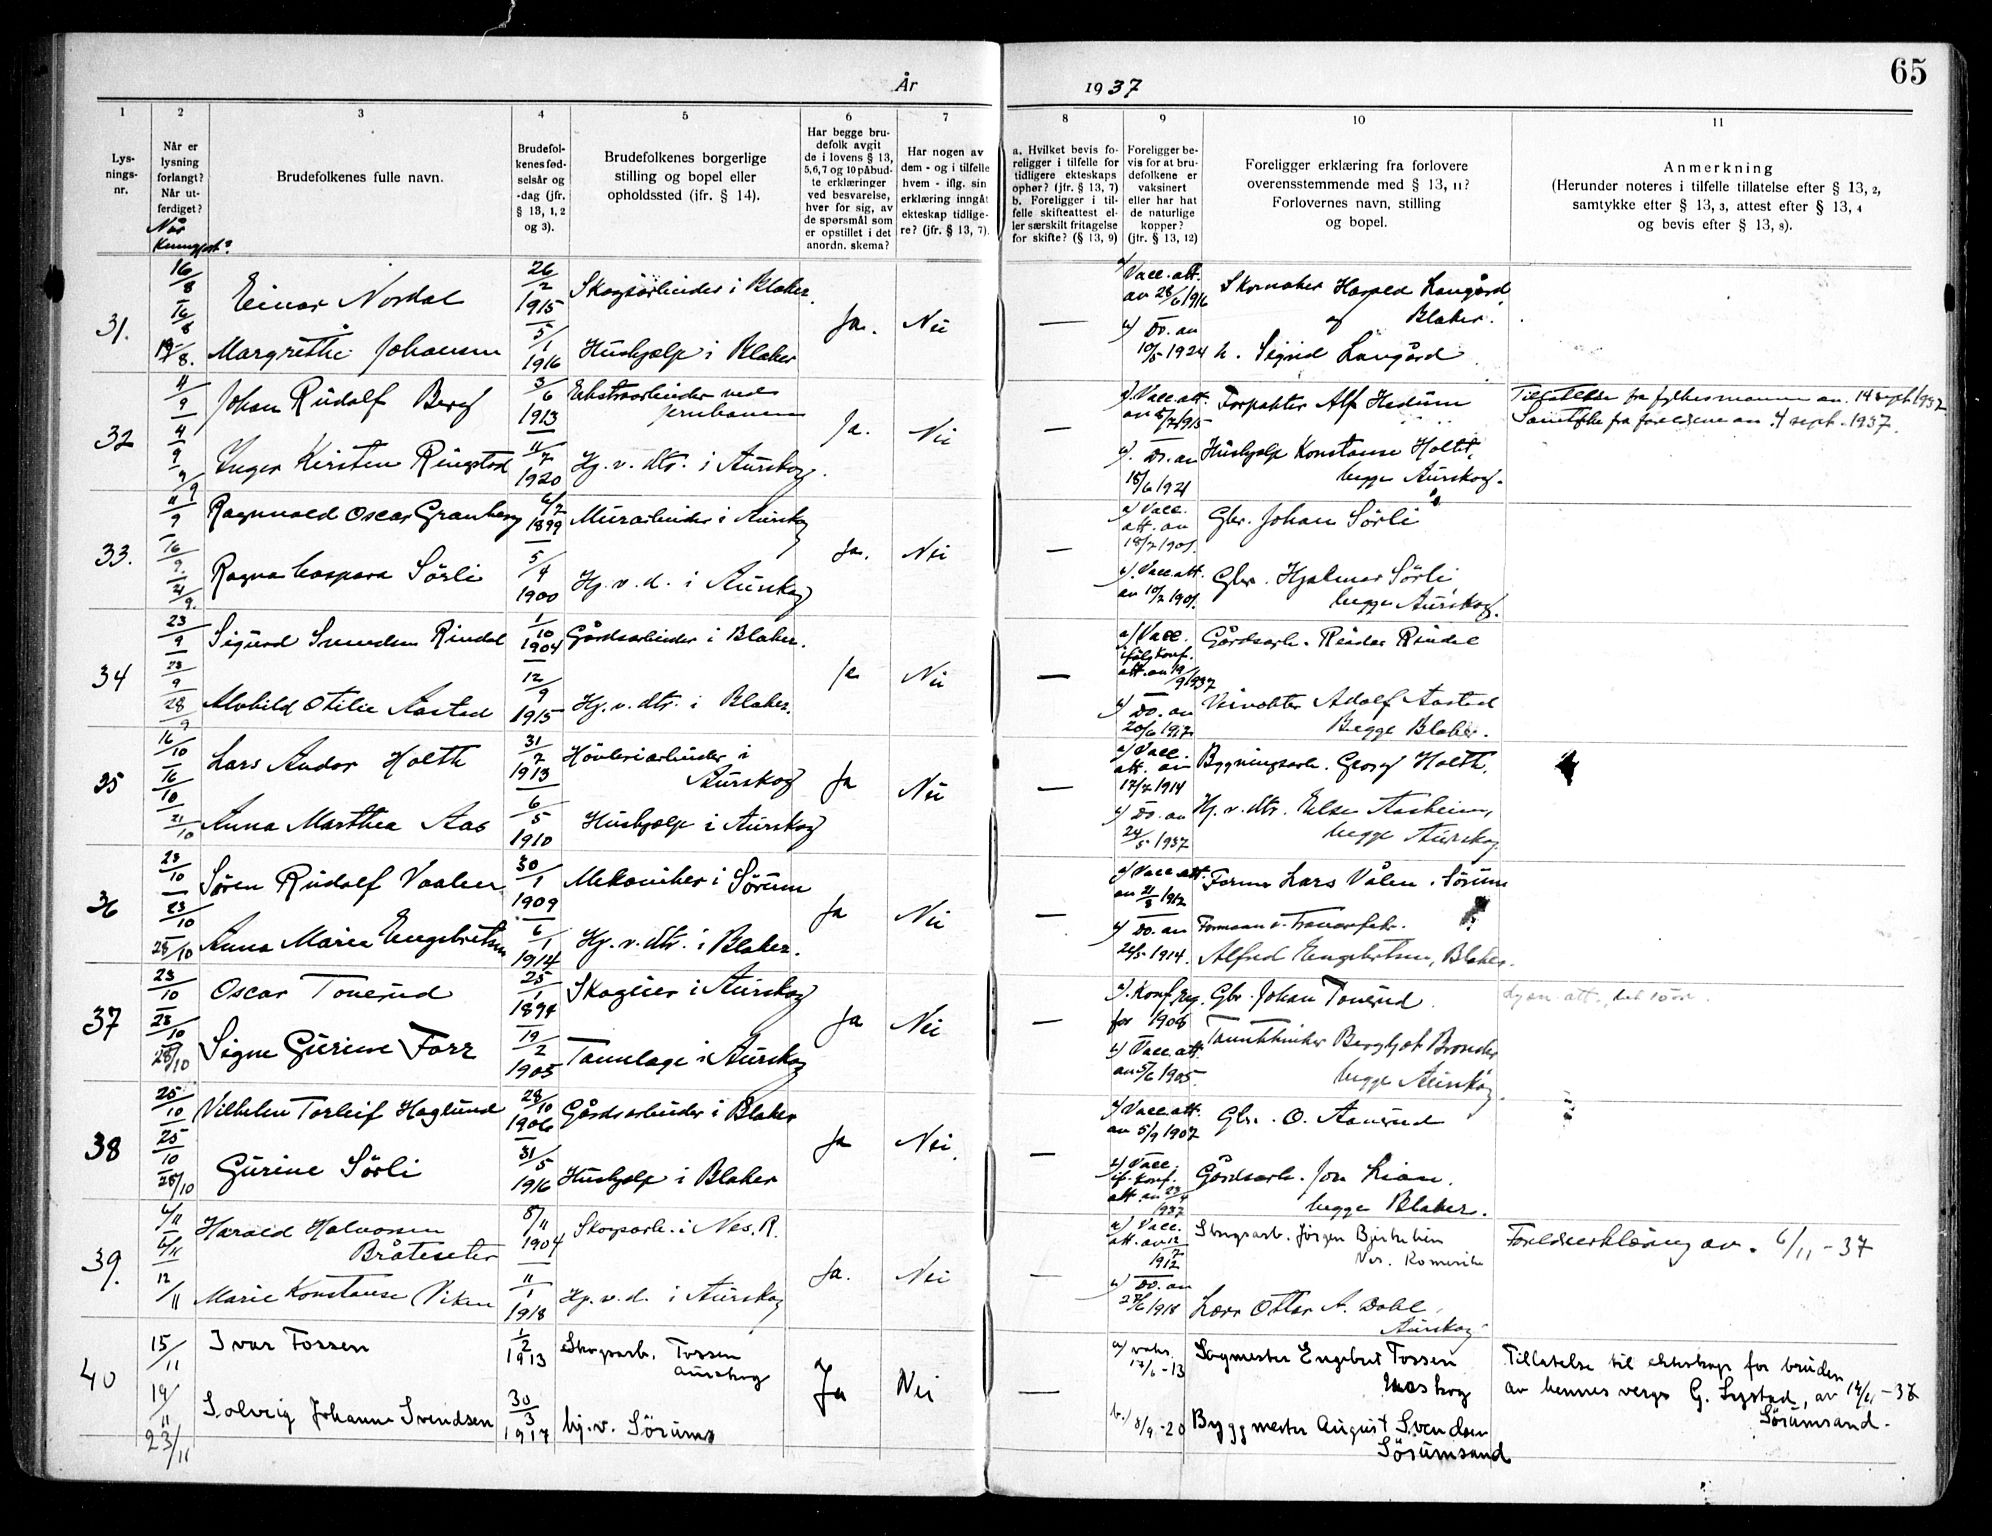 65
År 1937
1
2
3
4
5
6
7
8
9
10
11
Lys-
nings-
nr.
Når er
lysning
forlangt?
Når ut-
ferdiget?
Når
Kunngjort?
Brudefolkenes fulle navn.
Brudefol-
kenes fød-
selsår og
-dag (jfr.
§ 13, 1, 2
og 3).
Brudefolkenes borgerlige
stilling og bopel eller
opholdssted (jfr. § 14).
Har begge bru-
defolk avgit
de i lovens § 13,
5, 6, 7 og 10 påbud-
te erklæringer
ved besvarelse,
hver for sig, av
de spørsmål som
er opstillet i det
anordn. skema?
Har nogen av
dem - og i tilfelle
hvem - iflg. sin
erklæring inngåt
ekteskap tidlige-
re? (jfr. § 13, 7).
a. Hvilket bevis fo-
religger i tilfelle for
tidligere ekteskaps
ophør? (jfr. § 13, 7)
b. Foreligger i til-
felle skifteattest el-
ler særskilt fritagelse
for skifte? (§ 13, 9)
Foreligger be-
vis for at bru-
defolkene er
vaksinert
eller har hat
de naturlige
kopper?
(jfr. § 13, 12)
Foreligger erklæring fra forlovere
overensstemmende med § 13, 11?
Forlovernes navn, stilling
og bopel.
Anmerkning
(Herunder noteres i tilfelle tillatelse efter § 13, 2,
samtykke efter § 13, 3, attest efter § 13, 4
og bevis efter § 13, 8).
31.
16/8
16/8
19/8.
Einar Nordal
Margrethe Johansen
26/2 1915
5/1 1916
Skogsarbeider i Blaker.
Hushjelp i Blaker
Ja.
Nei
—
a) Vacc. att.
av 28/6 1916
b) Do. av
10/5 1924
Skomaker Harald Langård
av Blaker.
h. Sigrid Langård
32
4/9
4/9
9/9
Johan Rudolf Berg
Inger Kirsten Ringstad
3/6 1913
11/7 1920
Ekstraarbeider ved
jernbanen
Hj. v. dtr. i Aurskog.
Ja.
Nei
—
a). Vacc. att.
av 5/7 1915
b). Do. av
18/6 1921
Forpakter Alf Hedum
Hushjelp Konstanse Holtet,
begge Aurskog.
Tillatelse fra fylkesmannen av 14 sept. 1937
Samtykke fra foreldrene av 4 sept. 1937.
33.
16/9.
21/9.
Ragnvald Oscar Granberg
Ragna Caspara Sørli
6/2 1899
5/4 1900
Murarbeider i Aurskog
Hj. v. d. i Aurskog
Ja.
Nei
—
a) Vacc.
att. av
18/7 1901.
b). Vacc. att.
av 10/7 1901.
Gbr. Johan Sørli
Gbr. Hjalmar Sørli
begge Aurskog.
34
23/9
23/9
28/9
Sigurd Rindal
Alvhild Otilie Aastad
1/10 1904
12/9 1915
Gårdsarbeider i Blaker.
Hj. v. dtr. i Blaker.
Ja
Nei
—
a) Vacc.
ifølg. Konf.
att. av 19/9 1937
b) Do. av
20/6 1917
Gårdsarb. Reidar Rindal
Veivokter Adolf Aastad
Begge Blaker.
35
16/10
16/10
21/10
Lars Andor Holth
Anna Marthea Aas
31/7 1913
6/5 1910
Høvleriarbeider i
Aurskog
Hushjelp i Aurskog
Ja
Nei
—
a) Vacc.
att. av
17/7 1914
b) Do. av
24/5 1937
Bygningsarb. Georg Holth,
Hj. v. dtr. Else Aasheim,
begge Aurskog
36
23/10
23/10
28/10
Søren Rudolf Vaalen
Anna Marie Engebretsen
30/1 1909
6/1 1914
Mekaniker i Sørum
Hj. v. dtr. i Blaker.
Ja
Nei
—
a) Vacc. att.
b) Do. av
1914.
Lars Vålen. Sørum
Formann v. Tranfabr.
Alfred Engebretsen, Blaker.
37
23/10
23/10
28/10
Oscar Tonerud
Signe Gurine Forr
25/1 1894
19/2 1905
Skogeier i Aurskog
Tannlege i Aurskog
Ja
Nei
—
a). Konf. reg.
for 1908
b) Vacc. att.
av 5/6 1905.
Gbr. Johan Tonerud.
Tanntekniker Bergljot
begge Aurskog.
38
25/10
25/10
28/10
Vilhelm Torleif Haglund
Gurine Sørli
28/10 1906
31/5 1916
Gårdsarbeider i Blaker
Hushjelp i Blaker
Ja
Nei.
—
a) Vacc. att.
av 5/9 1907
b) Vacc.
if. Konf.
att. av 23/4
1937
Gbr. O. Aanerud
Gårdsarb. Jon Lian.
begge Blaker.
39.
6/11
6/11
12/11
Harald Halvorsen
Bråteseter
Marie Konstanse Viken
8/11 1904
11/1 1918
Skogsarb. i Nes. R.
Hj. v. d. i Aurskog
Ja.
Nei
—
a) Vacc.
att. av 12/7
1912
b) Do. av
1918
Skogsarb. Jørgen
Nes. Romerike
Lærer Ottar A. Dahl,
Aurskog
Foreldreerklæring av. 6/11-37
40
15/11
19/11
23/11
Ivar Fossen
Solveig Johanne Svendsen
1/2 1913
30/3 1917
Skogsarb. Fossen
Aurskog
hj. v. Sørum
Ja
Nei
—
a) vaks.
17/6-13
b.) 8/9-20
Sagmester Engebret Fossen
Aurskog
Byggmester August Svendsen
Sørumsand
Tillatelse til ekteskap for bruden
av hennes verge G. Systad, av 14/11-37
Sørumsand.